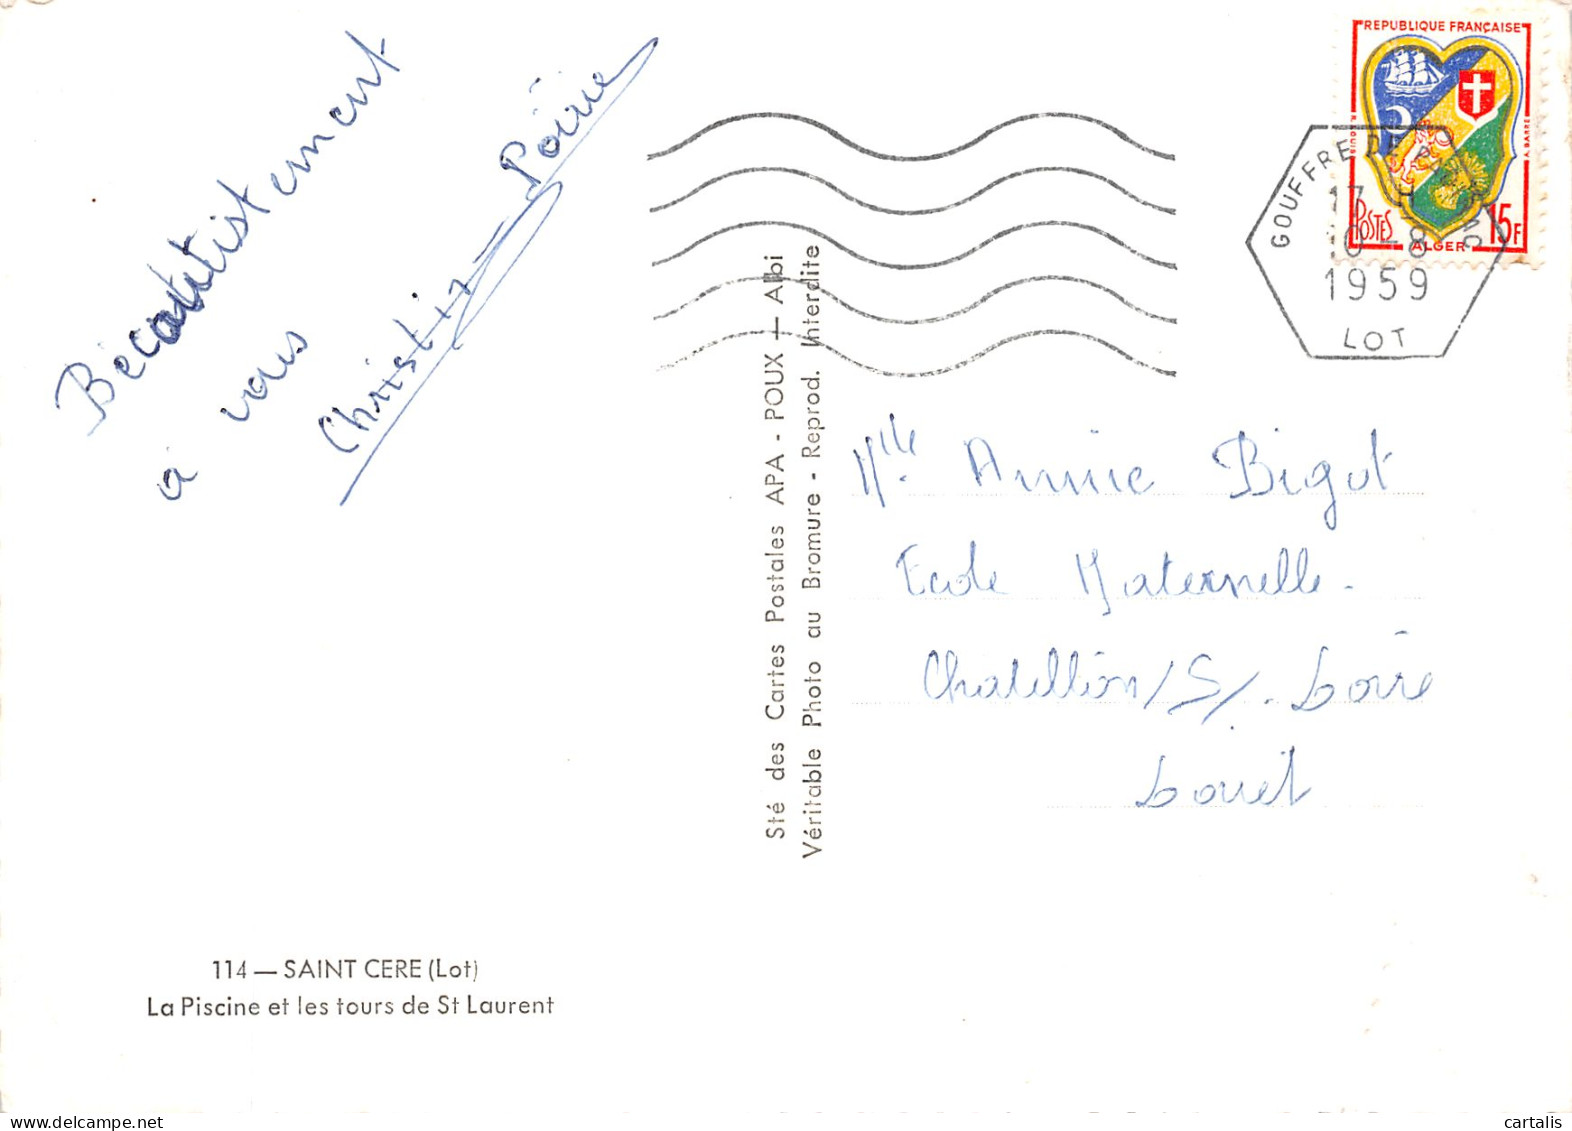 Bécotistement
à vous
REPUBLIQUE FRANÇAISE
POSTES
15F
ALGER
GOUFFRE DE PADIRAC
17 H
10 - 8
1959
LOT
Sté des Cartes Postales APA - POUX — Albi
Véritable Photo au Bromure - Reprod. Interdite
Mlle Annie Bigot
Ecole Maternelle.
Chatillion/S/. Loire
Loiret
114 — SAINT CERE (Lot)
La Piscine et les tours de St Laurent
www.delcampe.net
cartalis